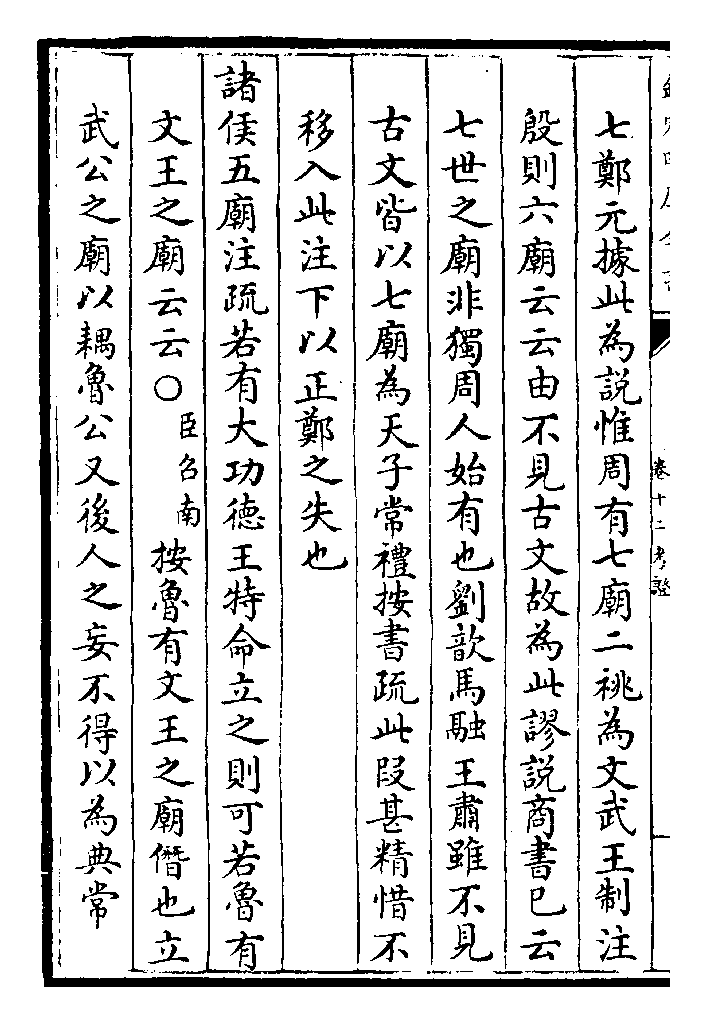 卷十二考證
七鄭元據此為說惟周有七廟二祧為文武王制注
殷則六廟云云由不見古文故為此謬說商書已云
七世之廟非獨周人始有也劉歆馬融王肅雖不見
古文皆以七廟為天子常禮按書疏此段甚精惜不
移入此注下以正鄭之失也
諸侯五廟注疏若有大功德王特命立之則可若魯有
文王之廟云云○臣召南按魯有文王之廟僭也立
武公之廟以耦魯公又後人之妄不得以為典常